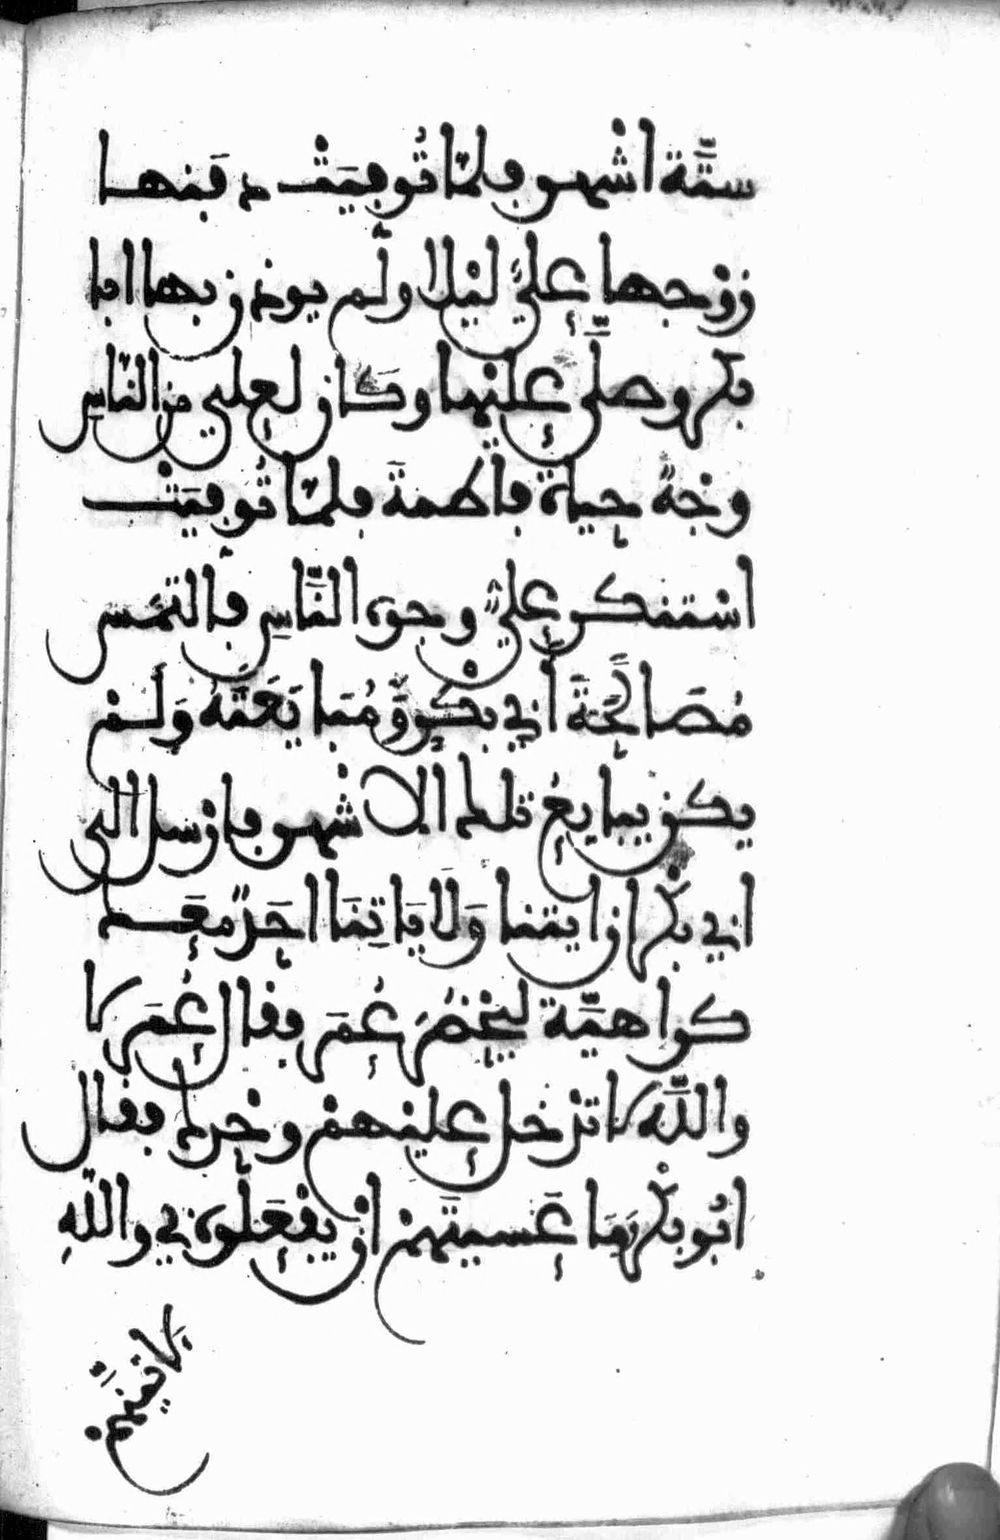 ستَّة اشهر فلمّا تُوفيَتْ دفنها
زوْجها عليٌّ ليْلا ولَم يوذن بها ابا
بكر وصلَّى عليْها وكَان لعلي من النّاسِ
وجْهً حياة فاطمة فلمّا تُوفيَتْ
اسْتنكر عليٌّ وجوه النَّاسِ فالتمَس
مُصَالَحَةَ أبي بكْرٍ وَمُبَايَعَتَهُ وَلمْ
يكن يبايعُ تلك الاشهر فارْسل الى
ابي بكْر ان ايتنا وَلَا يَاتِنَا احَدٌ معَك
كراهيَّة ليحْضُرَ عُمَر فقال عُمَر لا
والله لا تدْخل عليْهمْ وحْدك فقال
ابُو بكْر وَمَا عَسيتَهمْ انْ يفْعَلُوه بي واللهِ
لاتيَنهُمْ